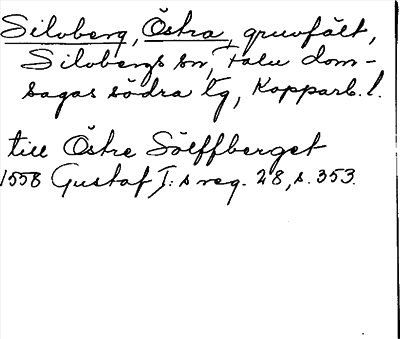 Silvberg, Östra, gruvfält,
Silvbergs sn, Falu dom-
sagas södra tg, Kopparb. l.
till Östre Sölffberget
1558 Gustaf I:s reg. 28, s. 353.